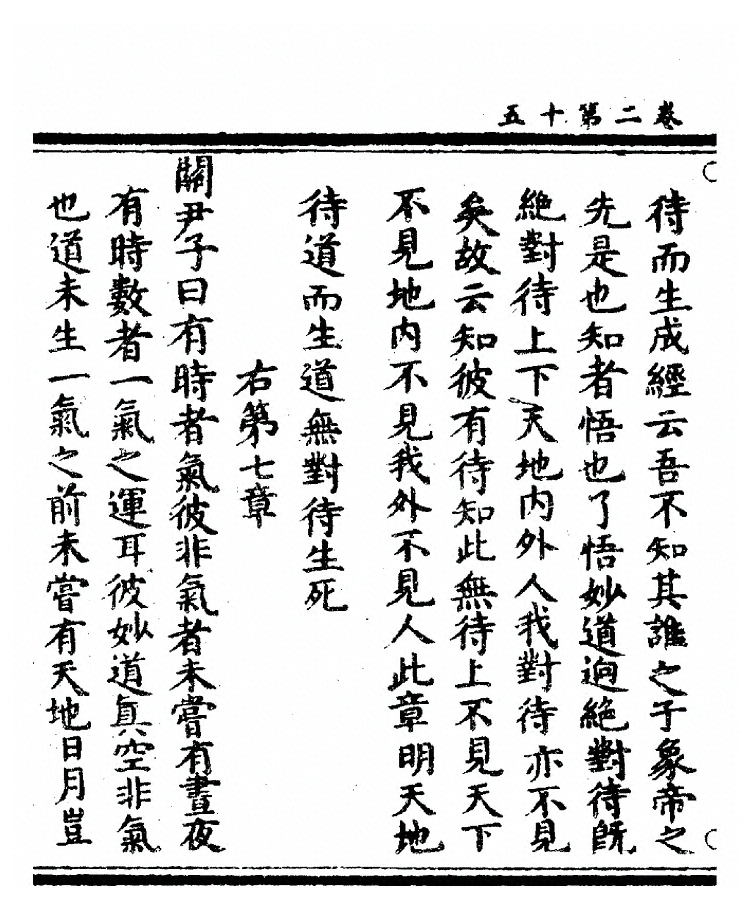 卷二第十五
待而生成經云吾不知其誰之子象帝之
先是也知者悟也了悟妙道逈絕對待旣
絕對待上下天地內外人我對待亦不見
矣故云知彼有待知此無待上不見天下
不見地內不見我外不見人此章明天地
待道而生道無對待生死
右第七章
關尹子曰有時者氣彼非氣者未嘗有晝夜
有時數者一氣之運耳彼妙道真空非氣
也道未生一氣之前未嘗有天地日月豈